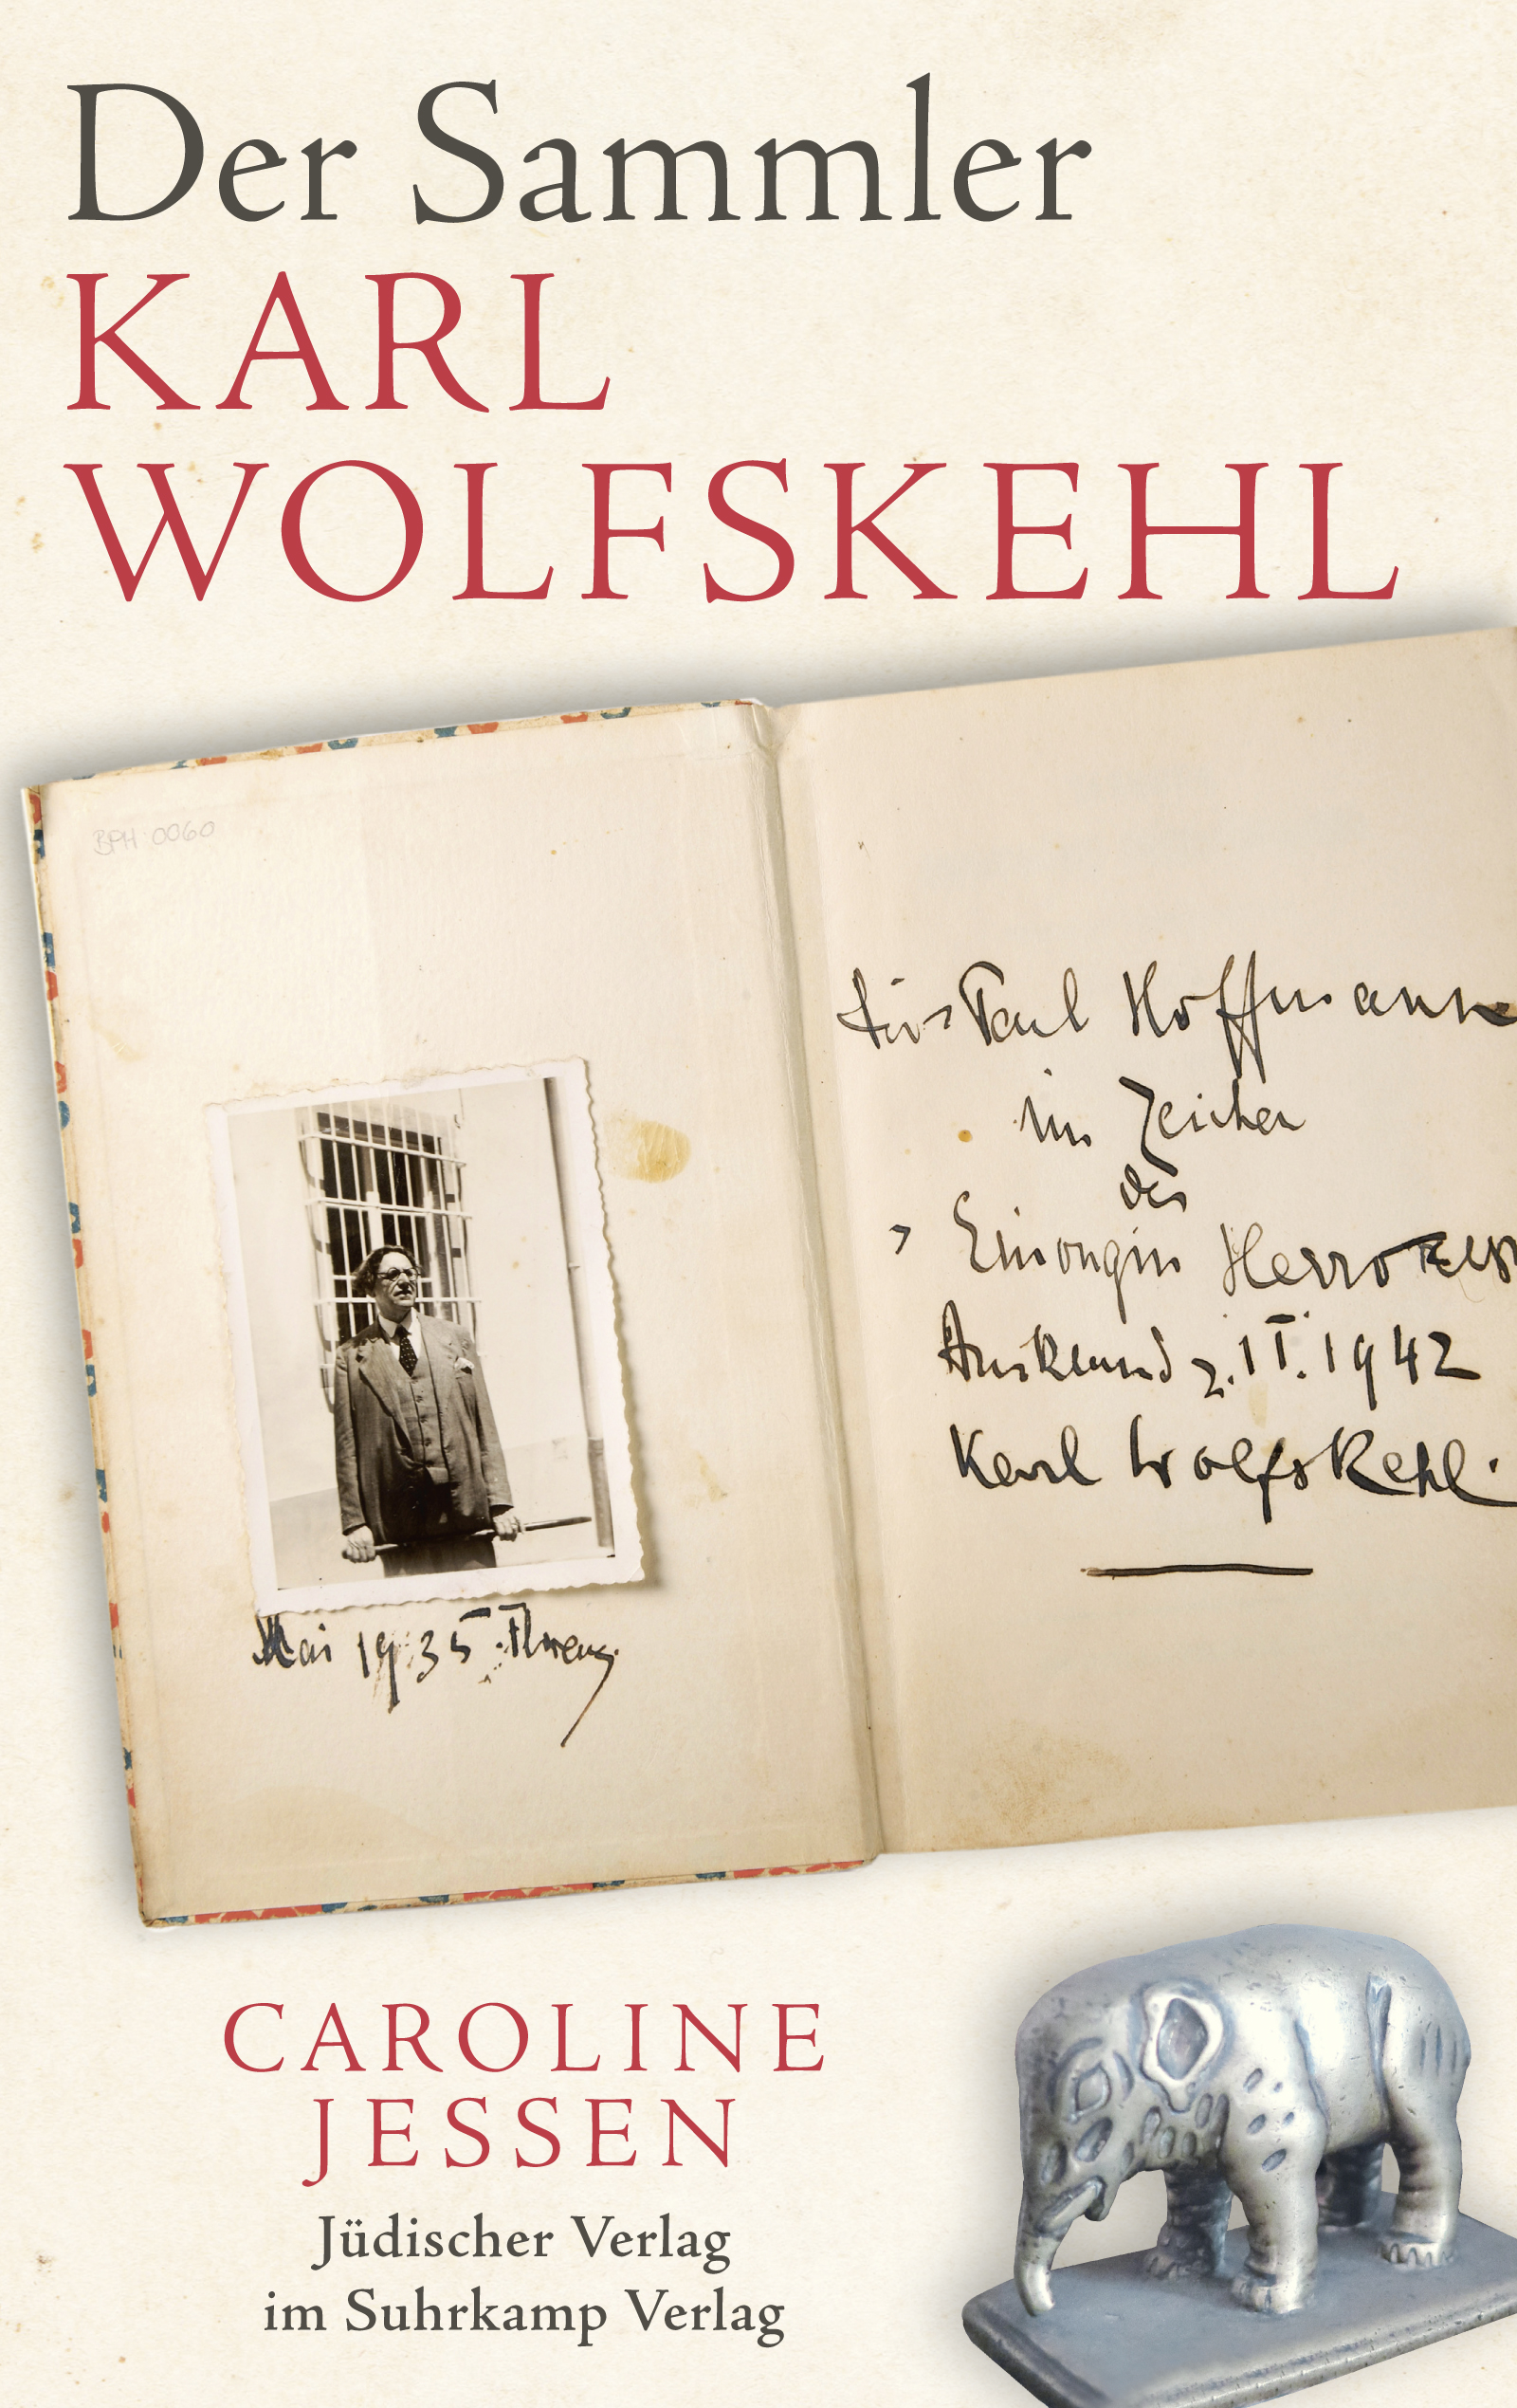 Der Sammler
KARL
WOLFSKEHL
BPH 0060
Mai 1935 Florenz
Paul Hoffmann
im Zeichen
des
Herrn
Auckland 2. II. 1942
Karl Wolfskehl.
CAROLINE
JESSEN
Jüdischer Verlag
im Suhrkamp Verlag